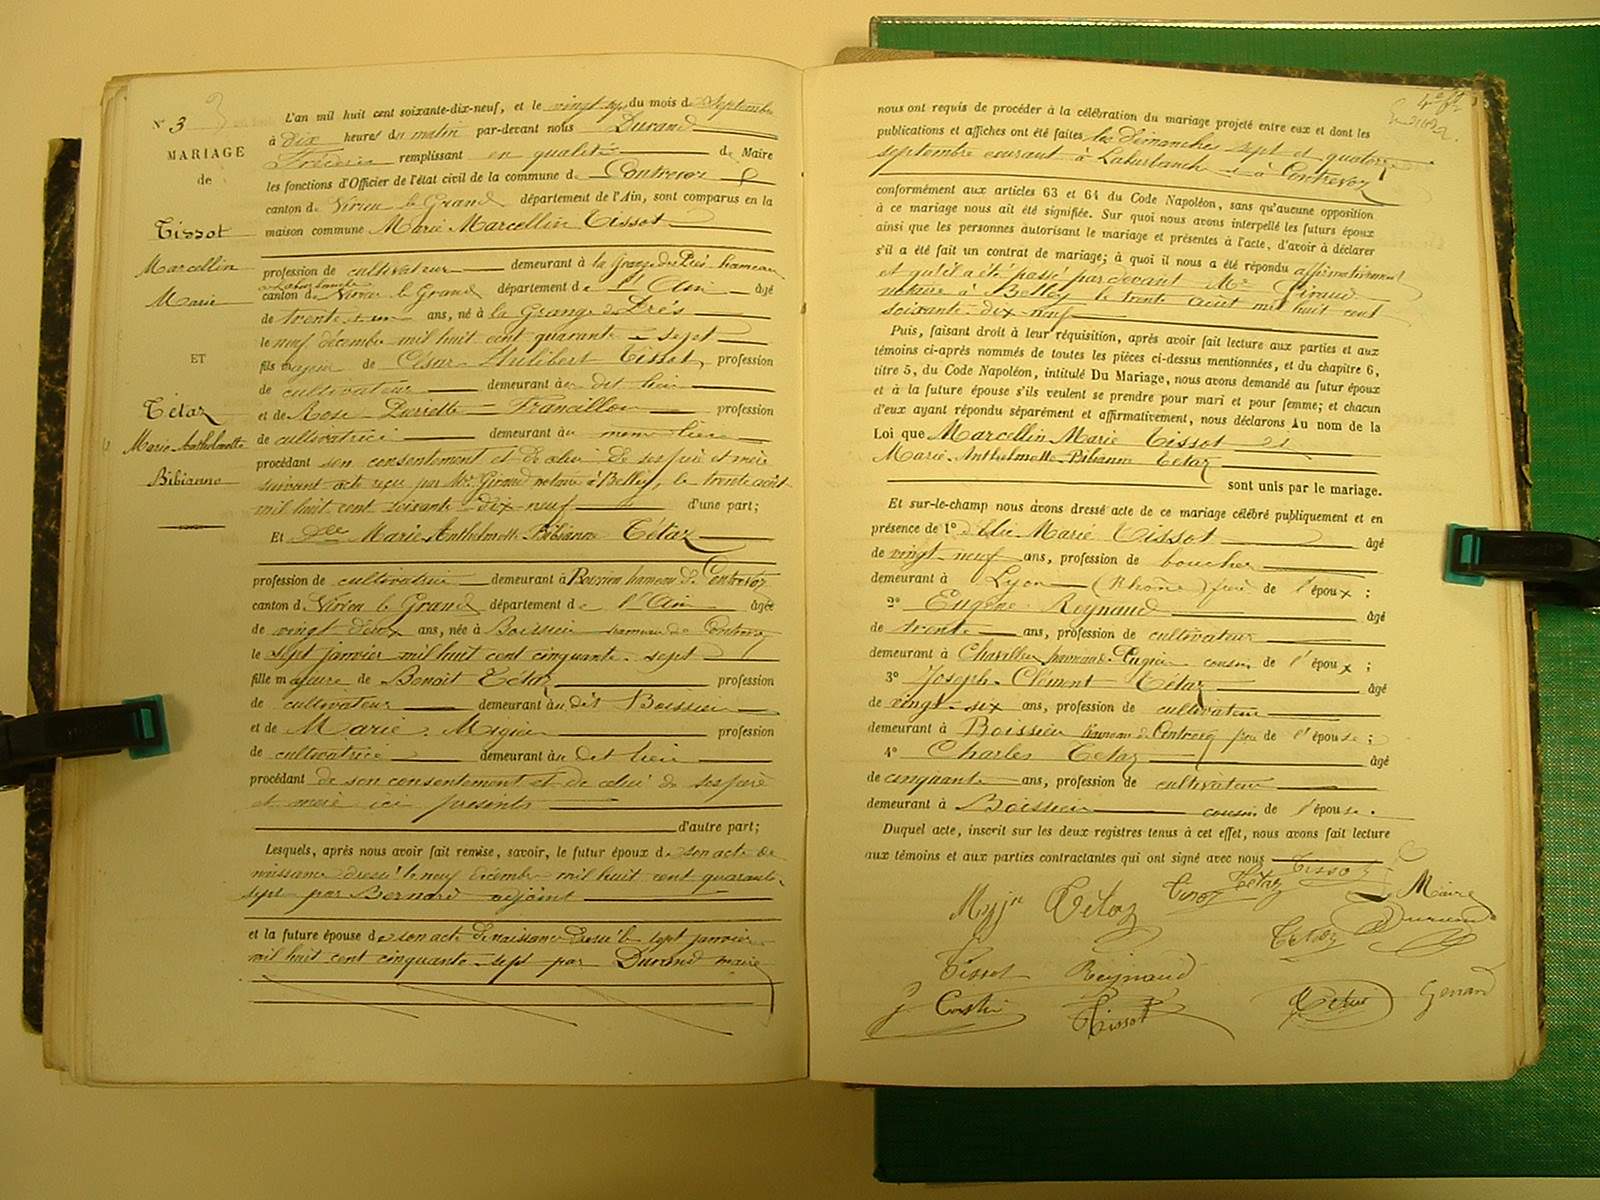 N° 3
MARIAGE
de
Tissot
Marcellin
Marie
ET
Tétaz
Marie Anthelmette
Bibianne
L'an mil huit cent soixante-dix-neuf, et le vingt sept du mois de Septembre
à dix heures du matin par-devant nous Durand
remplissant en qualité de Maire
les fonctions d'Officier de l'état civil de la commune de Contrevoz
canton de Virieu le Grand département de l'Ain, sont comparus en la
maison commune Marie Marcellin Tissot
profession de cultivateur demeurant à la Grange des Prés hameau
canton de Virieu le Grand département de l'Ain âgé
de trente et un ans, né à la Grange des Prés
le neuf décembre mil huit cent quarante sept
fils majeur de César Philibert Tissot, profession
de cultivateur demeurant au dit lieu
et de Rose Pierrette Francillon profession
de cultivatrice demeurant au meme lieu
procédant son consentement et de celui de ses père et mère
suivant acte reçu par Me Giraud notaire à Belley, le trente août
mil huit cent soixante dix-neuf d'une part;
Et Dlle Marie Anthelmette Bibianne Tétaz
profession de cultivatrice demeurant à Boissieu hameau de Contrevoz
canton de Virieu le Grand département de l'Ain âgée
de vingt deux ans, née à Boissieu hameau de Contrevoz
le sept janvier mil huit cent cinquante-sept
fille majeure de Benoit Tétaz profession
de cultivateur demeurant au dit Boissieu
et de Marie Migieu profession
de cultivatrice demeurant au dit lieu
procédant de son consentement et de celui de ses père
et mère ici présents
d'autre part;
Lesquels, après nous avoir fait remise, savoir, le futur époux de son acte de
naissance dressé le neuf décembre mil huit cent quarante-
sept par Bernard adjoint
et la future épouse de son acte de naissance dressé le sept janvier
mil huit cent cinquante-sept par Durand maire
nous ont requis de procéder à la célébration du mariage projeté entre eux et dont les
publications et affiches ont été faites les dimanches sept et quatorze
septembre courant à Laburbanche et à Contrevoz
conformément aux articles 63 et 64 du Code Napoléon, sans qu'aucune opposition
à ce mariage nous ait été signifiée. Sur quoi nous avons interpellé les futurs époux
ainsi que les personnes autorisant le mariage et présentes à l'acte, d'avoir à déclarer
s'il a été fait un contrat de mariage; à quoi il nous a été répondu affirmativement
et qu'il a été passé par devant Me Giraud
notaire à Belley le trente août mil huit cent
soixante-dix-neuf
Puis, faisant droit à leur réquisition, après avoir fait lecture aux parties et aux
témoins ci-après nommés de toutes les pièces ci-dessus mentionnées, et du chapitre 6,
titre 5, du Code Napoléon, intitulé Du Mariage, nous avons demandé au futur époux
et à la future épouse s'ils veulent se prendre pour mari et pour femme; et chacun
d'eux ayant répondu séparément et affirmativement, nous déclarons Au nom de la
Loi que Marcellin Marie Tissot et
Marie Anthelmette Bibianne Tétaz
sont unis par le mariage.
Et sur-le-champ nous avons dressé acte de ce mariage célébré publiquement et en
présence de 1° Elie Marie Tissot âgé
de vingt-neuf ans, profession de boucher
demeurant à Lyon (Rhône) frère de l'époux ;
2° Eugène Reynaud âgé
de trente ans, profession de cultivateur
demeurant à hameau cousin de l'époux ;
3° Joseph Clément Tétaz âgé
de vingt-six ans, profession de cultivateur
demeurant à Boissieu hameau de Contrevoz frère de l'épouse ;
4° Charles Tétaz âgé
de cinquante ans, profession de cultivateur
demeurant à Boissieu cousin de l'épouse.
Duquel acte, inscrit sur les deux registres tenus à cet effet, nous avons fait lecture
aux témoins et aux parties contractantes qui ont signé avec nous
Tissot
Tétaz
Tétaz
Le Maire
Durand
Tétaz
Tissot Reynaud
Tissot
Tétaz